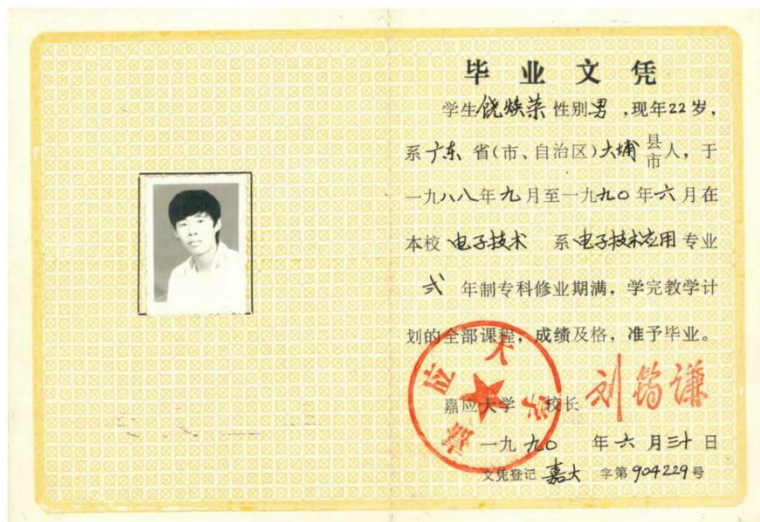 毕业文凭
学生饶焕荣性别男,现年22岁,
系广东省(市、自治区)大埔县市人,于
一九八八年九月至一九九〇年六月在
本校电子技术 系电子技术应用专业
弍 年制专科修业期满,学完教学计
划的全部课程,成绩及格,准予毕业。
嘉应大学
嘉应大学 校长 刘筠谦
一九九〇 年六月三十日
文凭登记嘉大 字第904229号